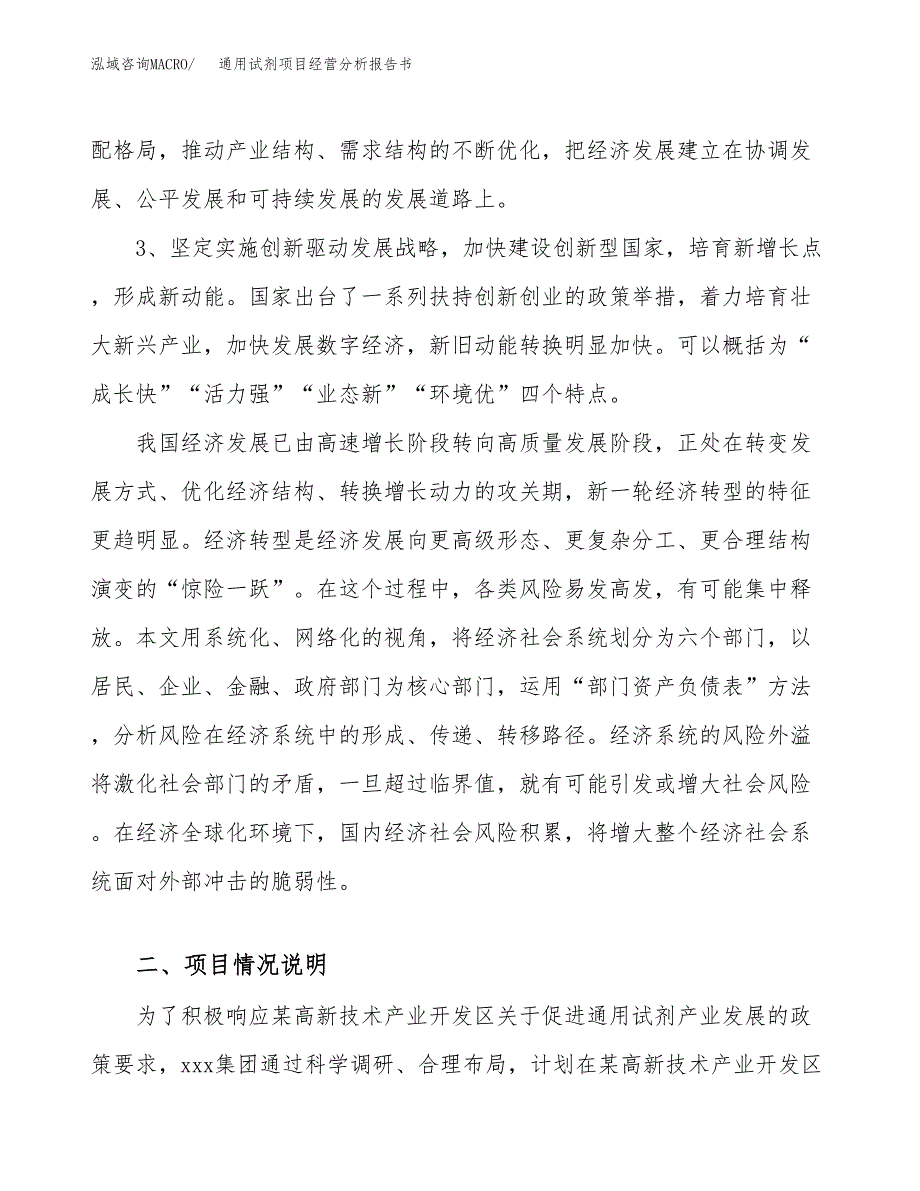 泓域咨询MACRO/ 通用试剂项目经营分析报告书
配格局，推动产业结构、需求结构的不断优化，把经济发展建立在协调发
展、公平发展和可持续发展的发展道路上。
3、坚定实施创新驱动发展战略，加快建设创新型国家，培育新增长点
，形成新动能。国家出台了一系列扶持创新创业的政策举措，着力培育壮
大新兴产业，加快发展数字经济，新旧动能转换明显加快。可以概括为“
成长快”“活力强”“业态新”“环境优”四个特点。
我国经济发展已由高速增长阶段转向高质量发展阶段，正处在转变发
展方式、优化经济结构、转换增长动力的攻关期，新一轮经济转型的特征
更趋明显。经济转型是经济发展向更高级形态、更复杂分工、更合理结构
演变的“惊险一跃”。在这个过程中，各类风险易发高发，有可能集中释
放。本文用系统化、网络化的视角，将经济社会系统划分为六个部门，以
居民、企业、金融、政府部门为核心部门，运用“部门资产负债表”方法
，分析风险在经济系统中的形成、传递、转移路径。经济系统的风险外溢
将激化社会部门的矛盾，一旦超过临界值，就有可能引发或增大社会风险
。在经济全球化环境下，国内经济社会风险积累，将增大整个经济社会系
统面对外部冲击的脆弱性。
二、项目情况说明
为了积极响应某高新技术产业开发区关于促进通用试剂产业发展的政
策要求，xxx集团通过科学调研、合理布局，计划在某高新技术产业开发区